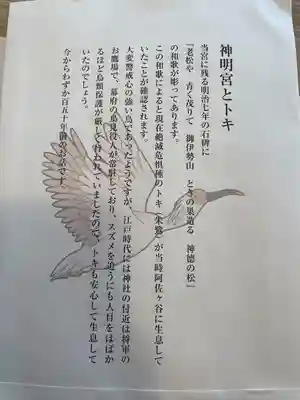 神明宮とトキ
当宮に残る明治七年の石碑に
『老松や 青く茂りて 御伊勢山 ときの巣造る 神徳の松』
の和歌が彫ってあります。
この和歌によると現在絶滅危惧種のトキ(朱鷺)が当時阿佐ヶ谷に生息して
いたことが確認されます。
大変警戒心の強い鳥であったようですが、江戸時代には神社の付近は将軍の
お鷹場で、幕府の鳥見役人が常駐しており、スズメを追うにも人目をはばか
るほど鳥類保護が厳しく行われていましたので、トキも安心して生息して
いたのでしょう。
今からわずか百五十年前のお話です。